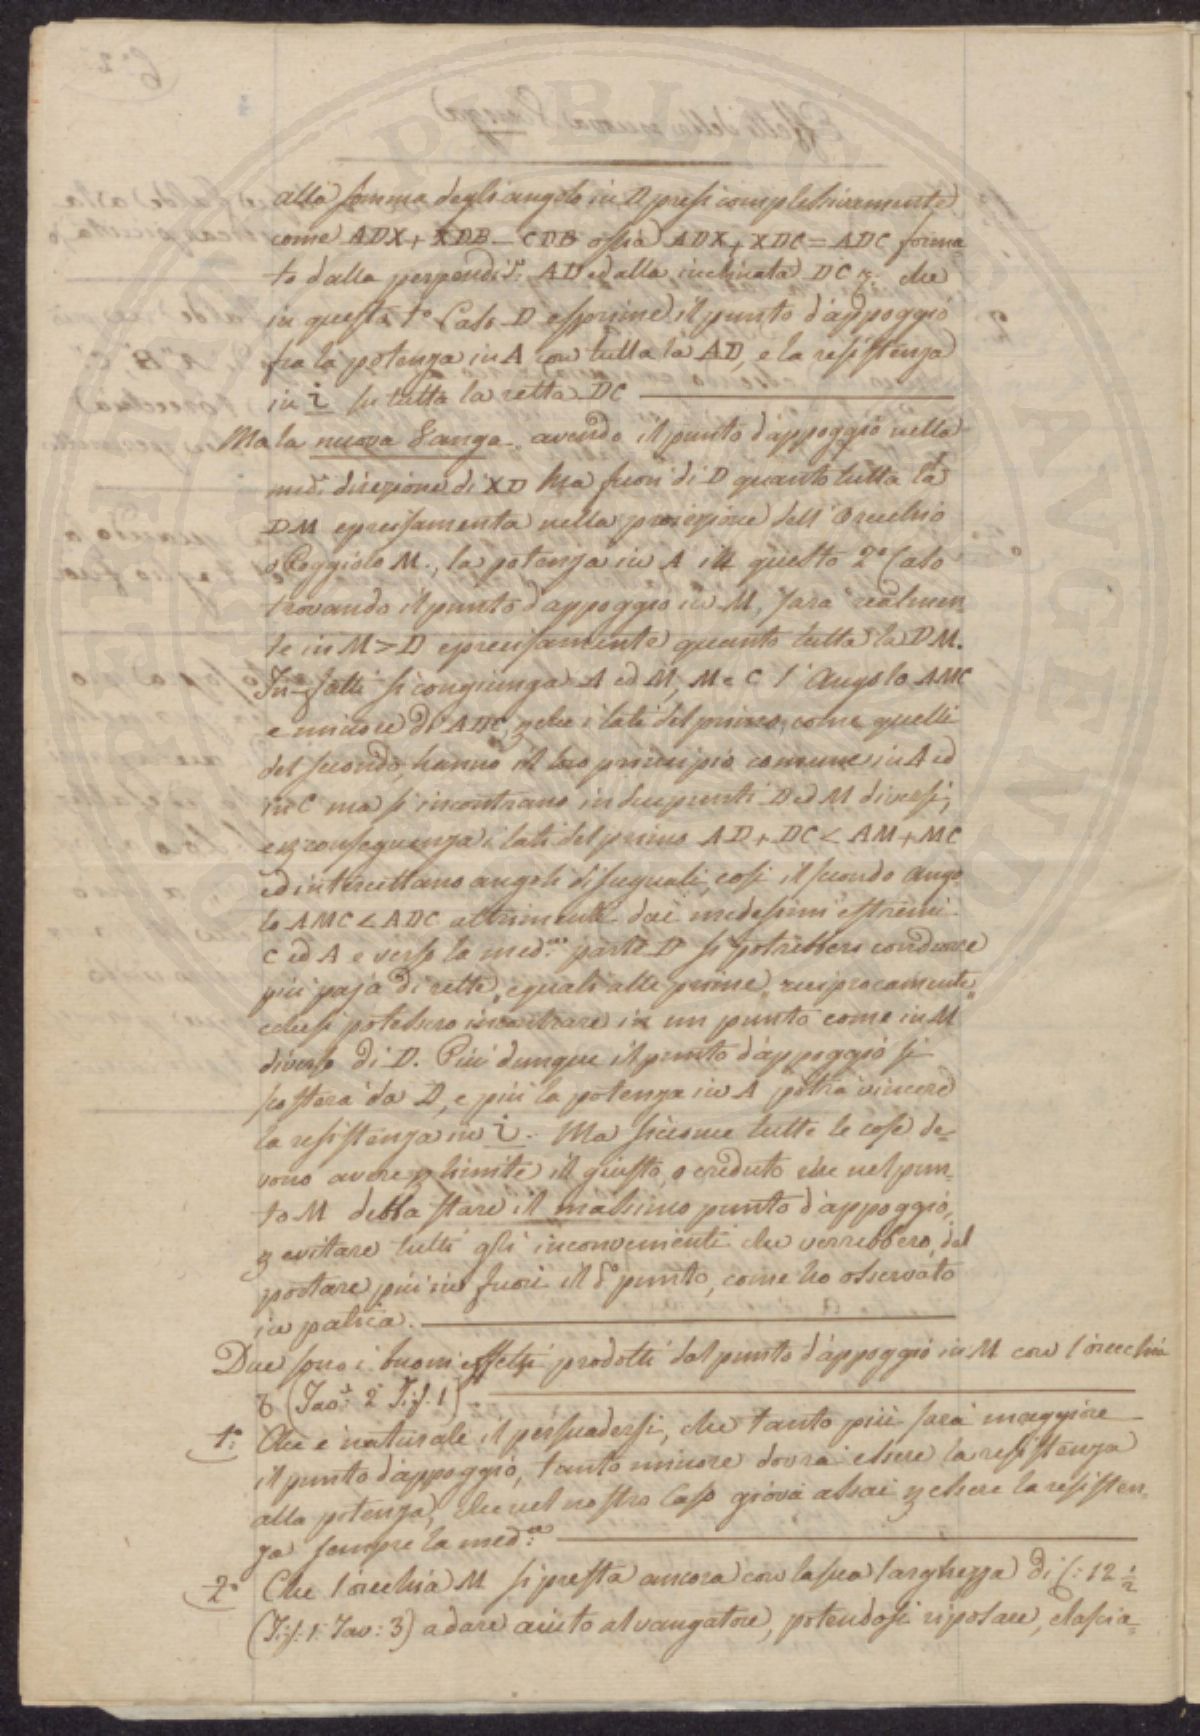 alla somma degli angolo in D presi complessivamente
come ADX + XDB - CDB ossia ADX + XDC = ADC forma
to dalla perpendi: AD ed alla inclinata DC che
in questo 1° Caso D esprime il punto d'appoggio
fra la potenza in A con tutta la AD, e la resistenza
in i su tutta la retta DC
Ma la nuova Vanga avendo il punto d'appoggio nella
med: direzione di XD ma fuori di D quanto tutta la
DM e precisamente nella proiezione dell' Orecchio
o Poggiolo M., la potenza in A in questo 2° Caso
trovando il punto d'appoggio in M, sara realmen
te in M > D e precisamente quanto tutta la DM.
In fatti si congiunga A ed M, M e C l'Angolo AMC
e minore di ADC, che i lati del primo, come quelli
del secondo, hanno il loro principio comune in A ed
in C ma si incontrano in due punti D ed M diversi,
e conseguenza i lati del primo AD + DC < AM + MC
ed intercettano angoli disuguali, cosi il secondo Ango
lo AMC < ADC altrimenti dai medesimi estremi
C ed A e verso la med: parte D si potrebbero condurre
piu paja di rette, eguali alle prime, reciprocamente
e che si potessero incontrare in un punto come in M
diverso di D. Piu dunque il punto d'appoggio si
scostera da D, e piu la potenza in A potra vincere
la resistenza in i. Ma siccome tutte le cose de=
vono avere limite il giusto, o creduto che nel pun=
to M debba stare il massimo punto d'appoggio,
evitare tutti gli inconvenienti che verrebbero, dal
portare piu in fuori il d° punto, come ho osservato
in patica.
Due sono i buoni effetti prodotti dal punto d'appoggio in M con l'orecchia
(Tav: 2 Fif. 1)
1° Che e naturale il persuadersi, che tanto piu sara maggiore
il punto d'appoggio, tanto minore dovra essere la resistenza
alla potenza, che nel nostro Caso giova assai essere la resisten=
za sempre la med:
2° Che l'orecchia M si presta ancora con la sua larghezza di 12 1/2
(Fif: 1: Tav: 3) a dare aiuto al vangatore, potendosi riposare, e lascia=